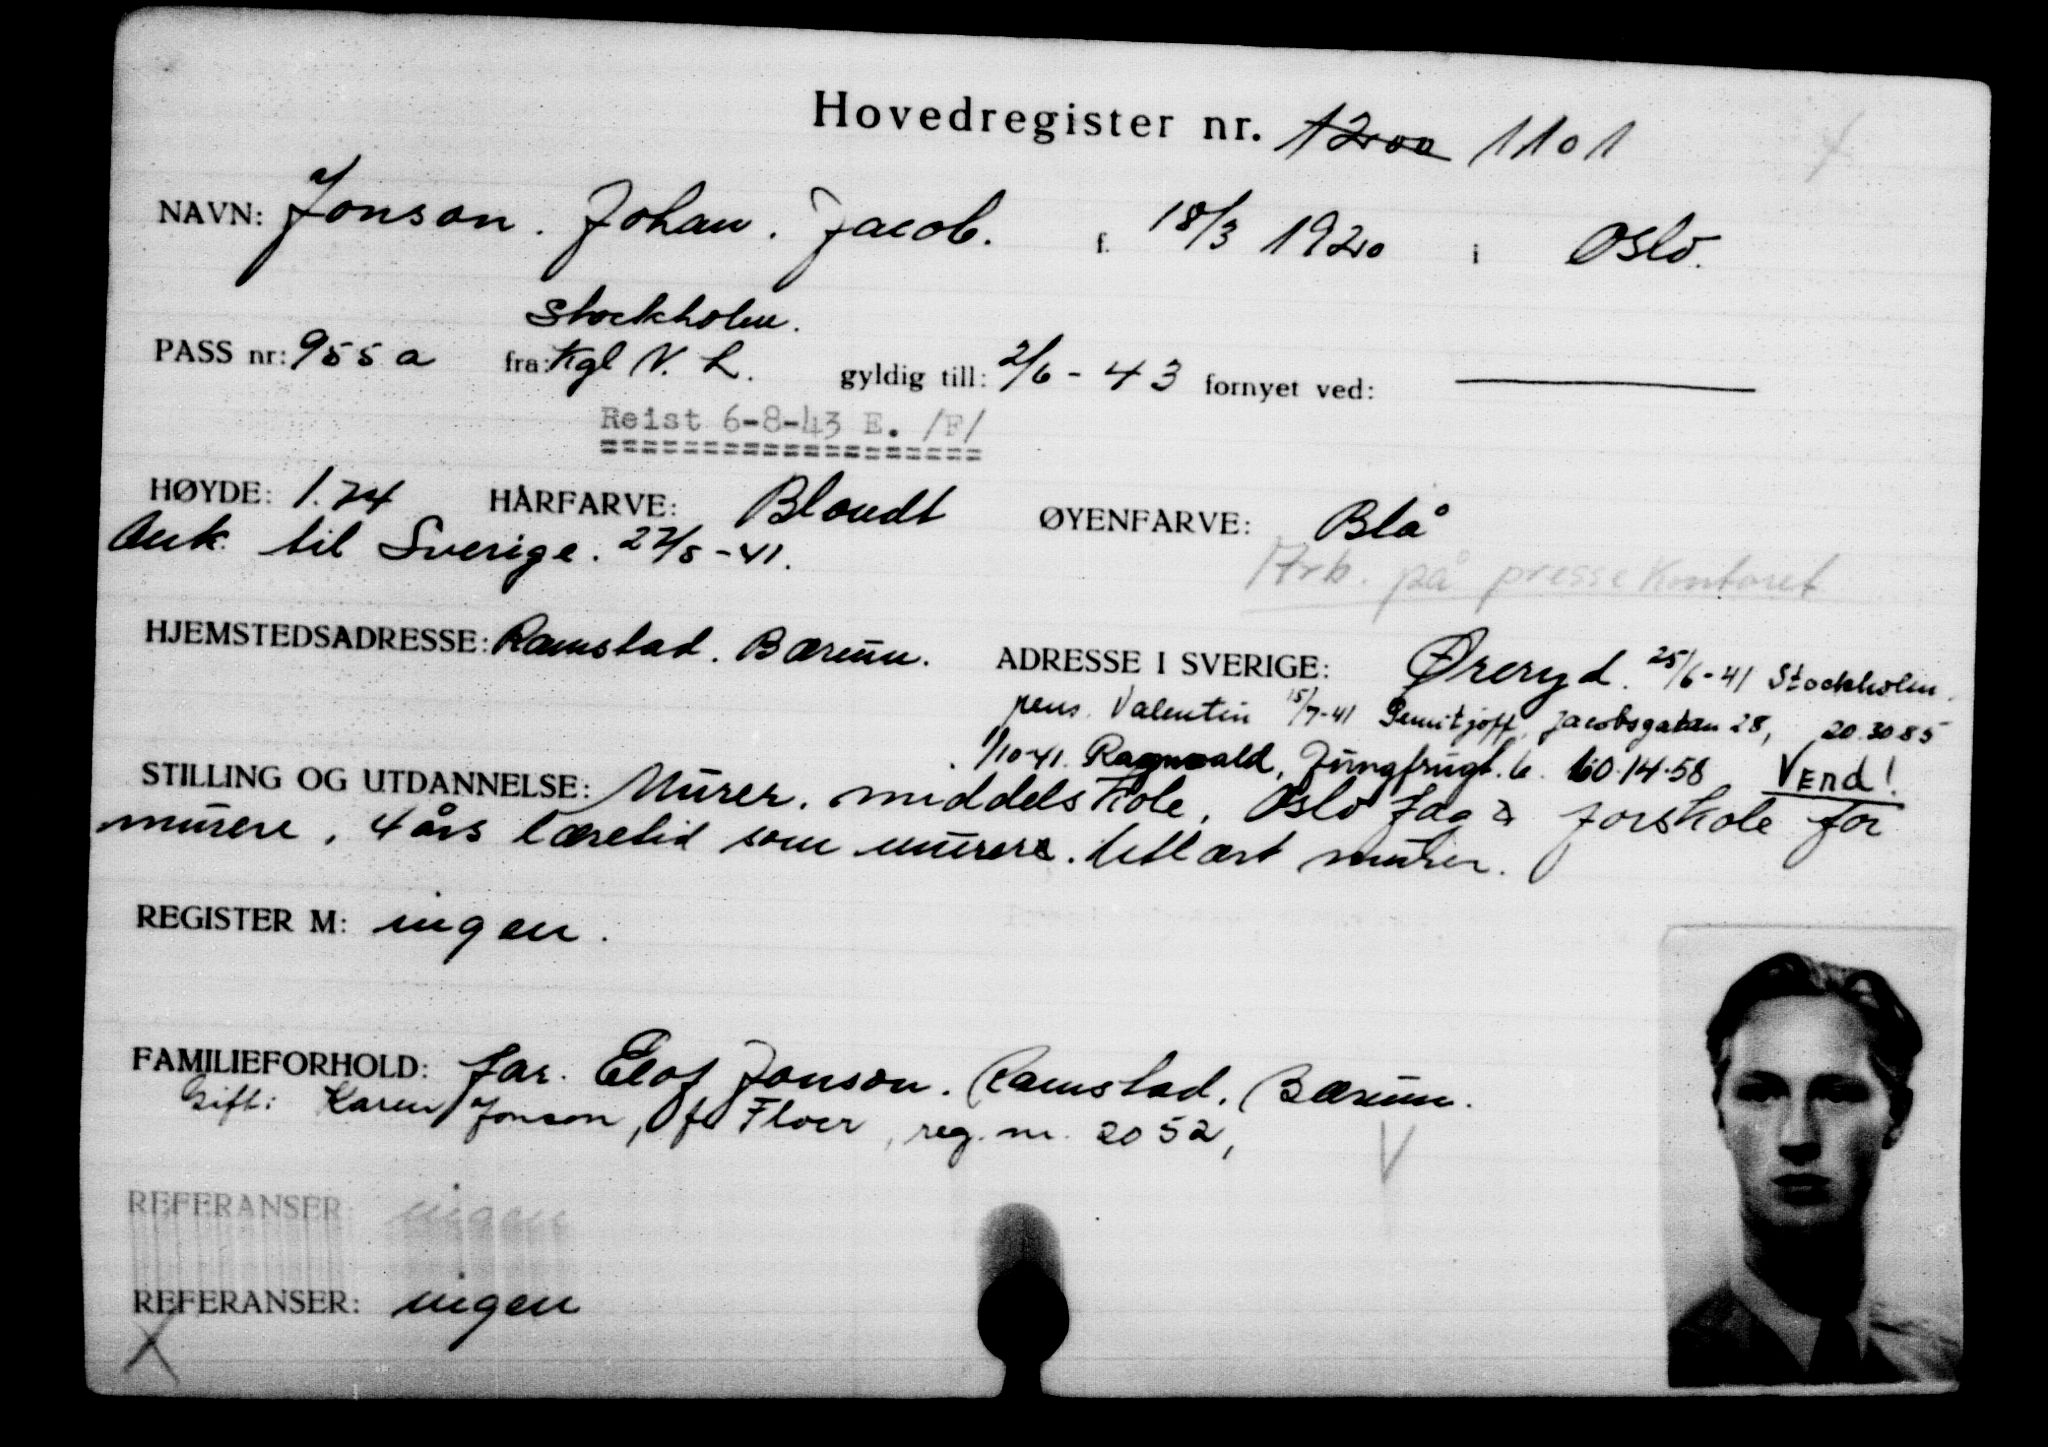 Hovedregister nr. 1200 1101
NAVN: Jonson. Johan. Jacob. f. 18/3 1920 i Oslo.
Stockholm.
PASS nr: 955 a fra: Kgl N. L. gyldig till: 2/6 - 43 fornyet ved:
Reist 6-8-43 E. /F/
HØYDE: 1.74 HÅRFARVE: Blondt ØYENFARVE: Blå
Ank. til Sverige. 22/5 - 41.
Arb. på pressekontoret
HJEMSTEDSADRESSE: Ramstad. Bærum. ADRESSE I SVERIGE: Øreryd. 25/6-41 Stockholm.
pens. Valentin 15/7-41 Jacobsgatan 28, 20.30 85
1/10-41. Ragnvald, Jungfrugt. 6. 60.14.58 VEnd!
STILLING OG UTDANNELSE: Murer. middelskole, Oslo fag & forskole for
murere, 4 års læretid som murer. Utlært murer.
REGISTER M: ingen.
FAMILIEFORHOLD: far. Elof Jonson. Ramstad. Bærum.
Gift: Karen Jonson, f. Floer, reg. nr. 2052,
V
REFERANSER: ingen
REFERANSER: ingen
X